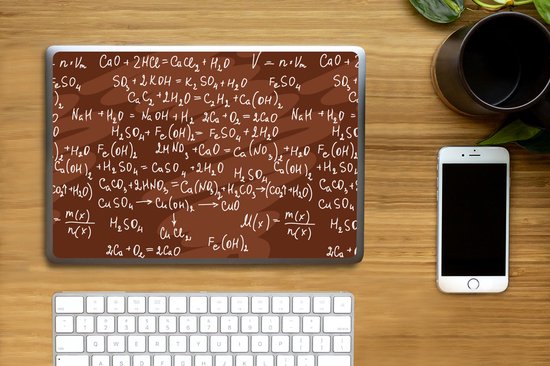 n·Vm CaO + 2HCl = CaCl2 + H2O V = n·Vm CaO + 2
FeSO4 SO3 + 2KOH = K2SO4 + H2O FeSO4 SO3 +
CaC2 + 2H2O = C2H2 + Ca(OH)2
NaH + H2O = NaOH + H2 2Ca + O2 = 2CaO NaH + H2O =
H2SO4 + Fe(OH)2 = FeSO4 + 2H2O H2S
)2 + H2O Fe(OH)2 2HNO3 + CaO = Ca(NO3)2 + H2O Fe(OH)2
(OH)2 + H2SO4 = CaSO4 + 2H2O H2SO4 Ca(OH)2 + H
CO2↑ + H2O) CaCO3 + 2HNO3 = Ca(NO3)2 + H2CO3 → (CO2↑ + H2O) CaCO3
CuSO4 → Cu(OH)2 → CuO CuSO
= m(x)/n(x) H2SO4 CuCl2 M(x) = m(x)/n(x) H2SO
2Ca + O2 = 2CaO Fe(OH)2 2Ca +